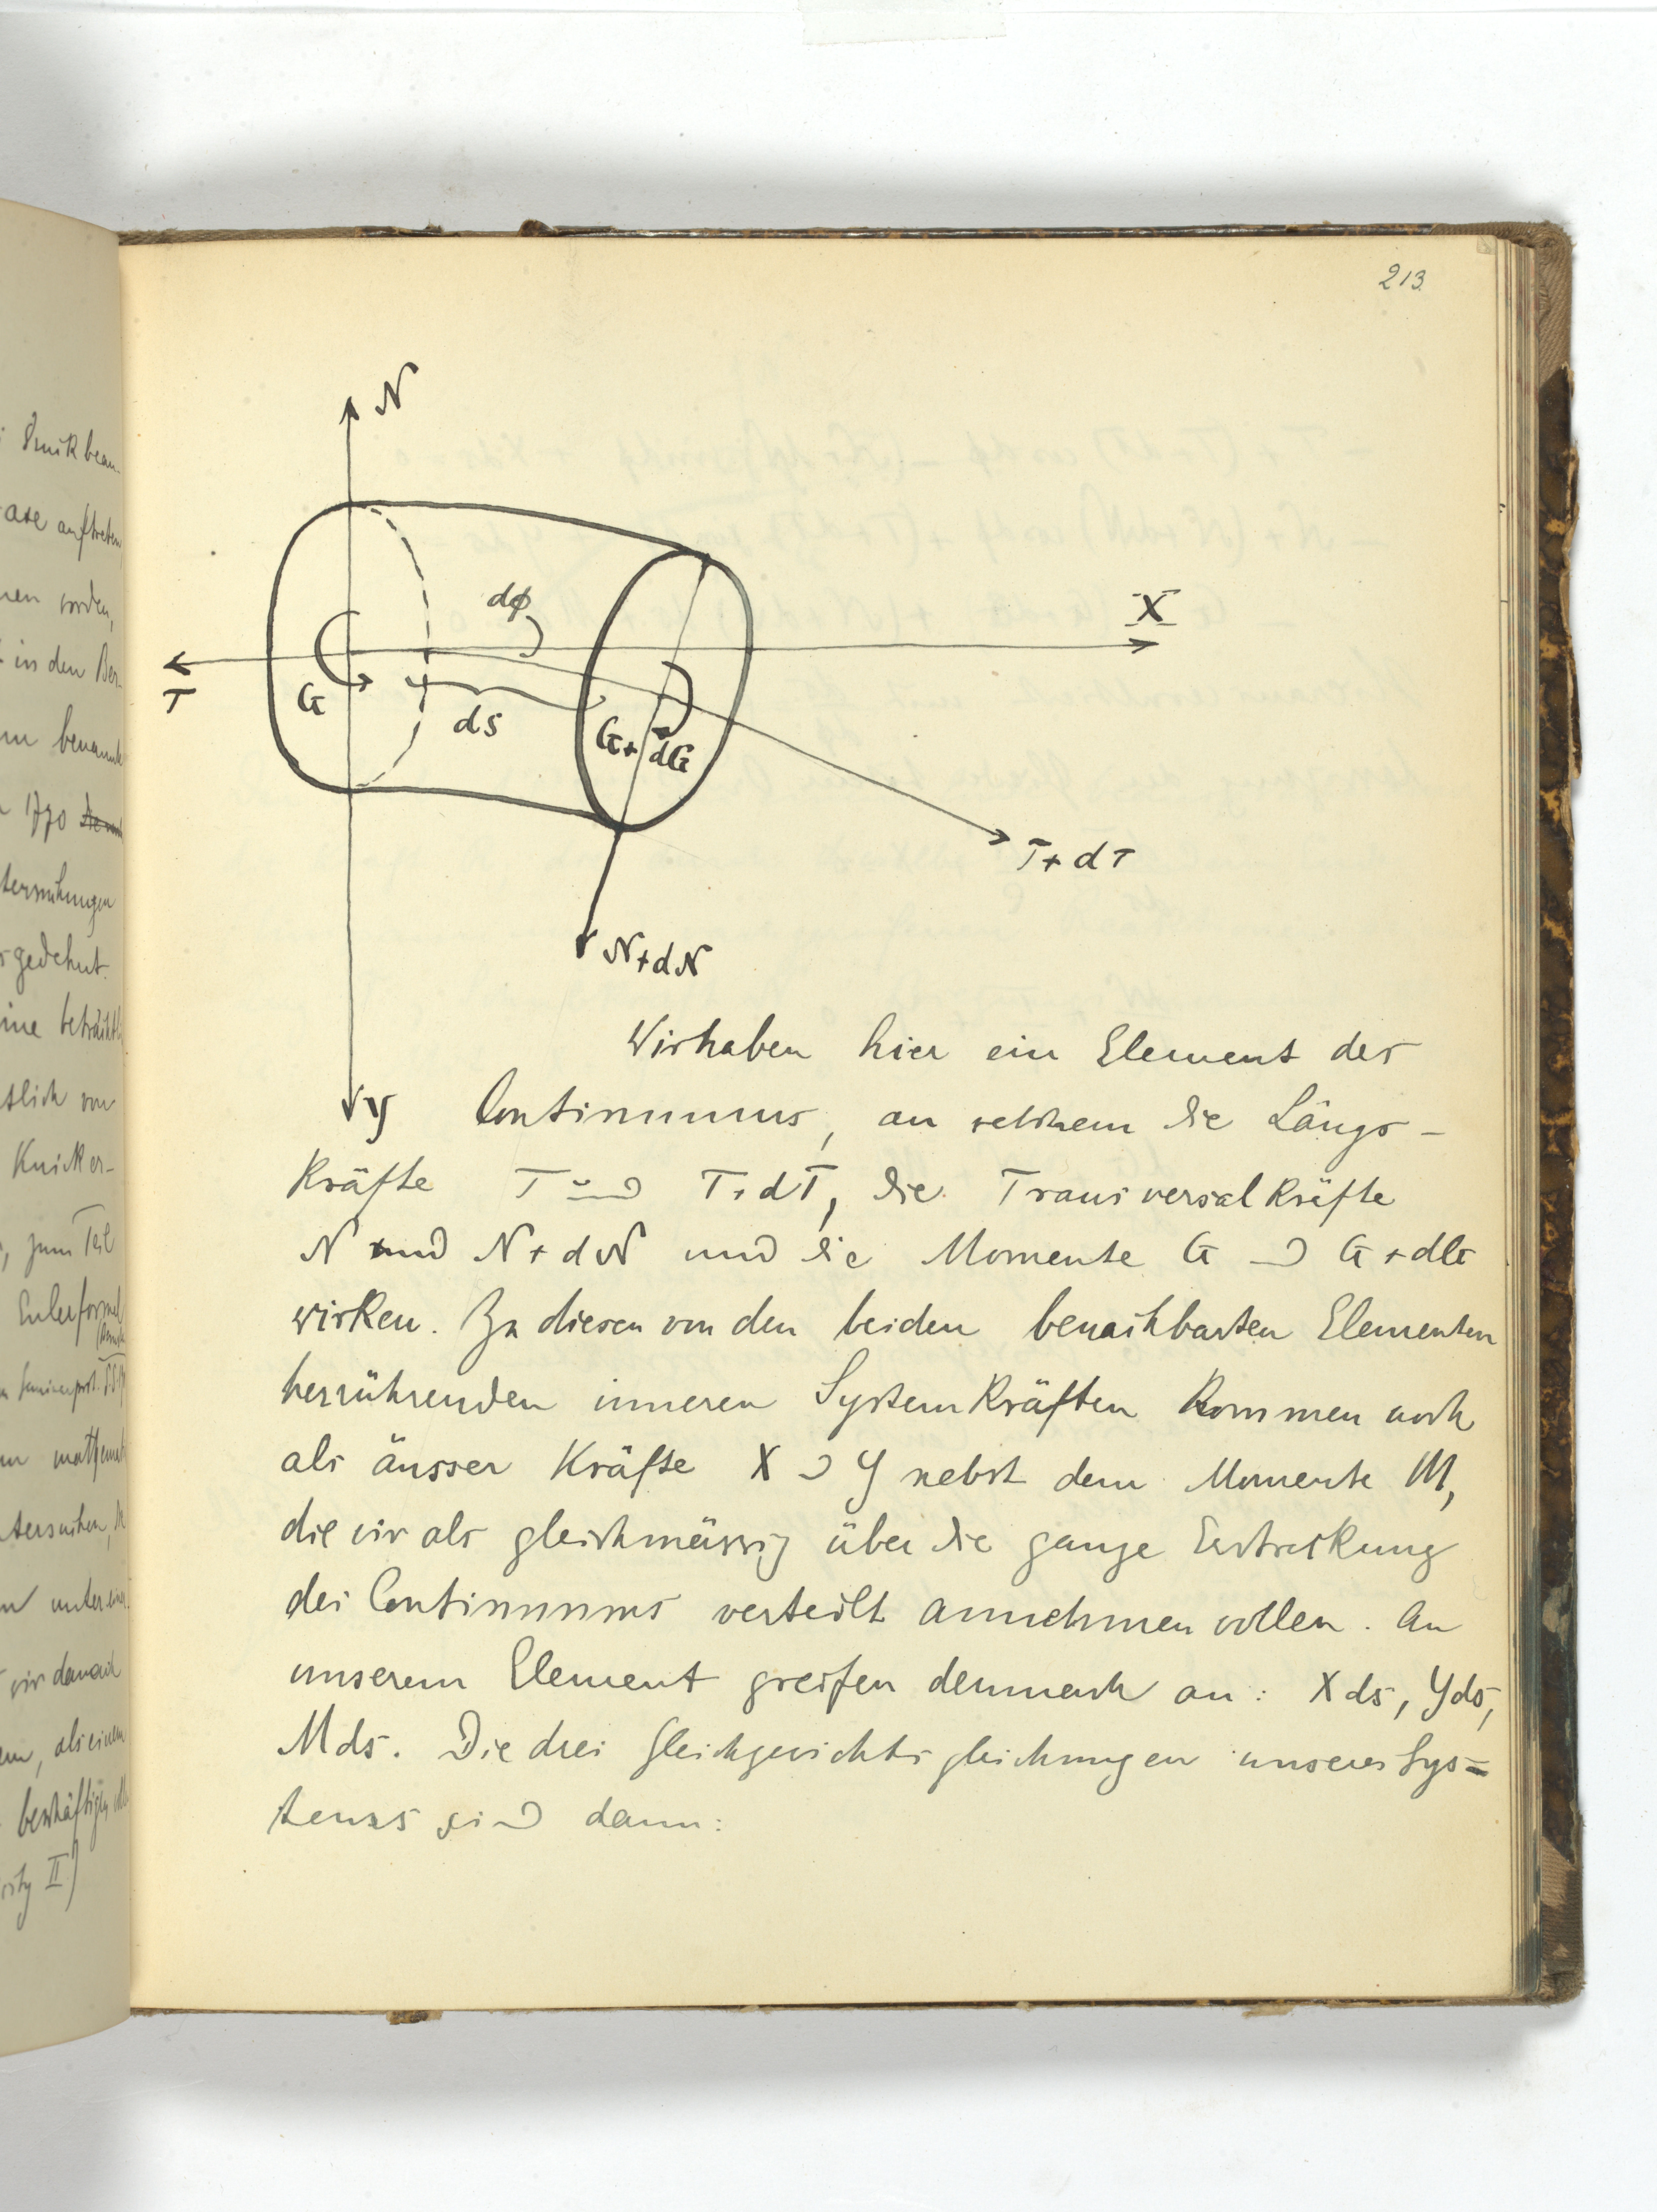 213.
N
dφ
X
T
G
ds
G+dG
T+dT
N+dN
y
Wir haben hier ein Element des
Continuums, an welchem die Längs-
kräfte T und T+dT, die Transversalkräfte
N und N+dN und die Momente G und G+dG
wirken. Zu diesen von den beiden benachbarten Elementen
herrührenden inneren Systemkräften kommen noch
als äusser Kräfte X und Y nebst dem Momente M,
die wir als gleichmässig über die ganze Erstreckung
des Continuums verteilt annehmen wollen. An
unserem Element greifen demnach an: Xds, Yds,
Mds. Die drei Gleichgewichtsgleichungen unseres Sys=
tems sind dann:
ase auftreten,
nen worden,
in den Ber-
benannte
1770
tersuchungen
gedehnt.
ine beträchtl
tlich von
Knicker-
, zum Teil
Eulerformel
tersuchen,
unter einer
wir danach
, als einem
beschäftigen
II)